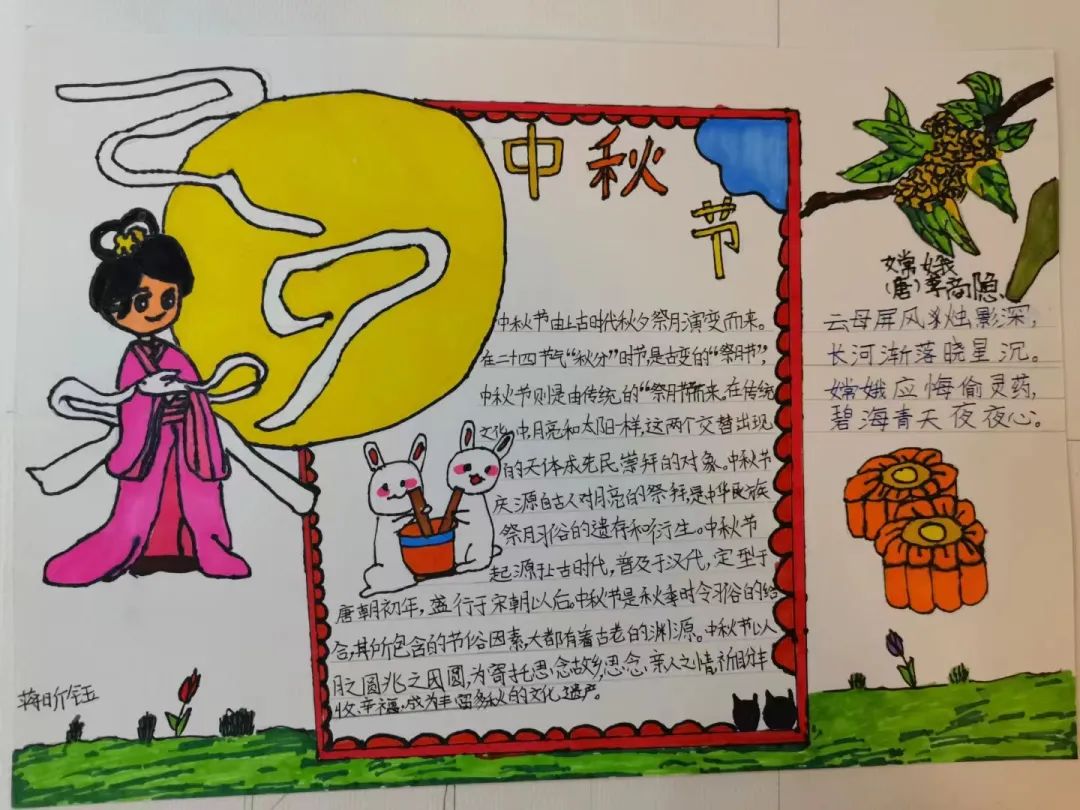 中秋
节
中秋节由上古时代秋夕祭月演变而来。
在二十四节气“秋分”时节,是古变的“祭月节”,
中秋节则是由传统的“祭月节”而来。在传统
文化中,月亮和太阳一样,这两个交替出现
的天体成先民崇拜的对象。中秋节
庆源自古人对月亮的祭拜,是中华民族
祭月习俗的遗存和衍生。中秋节
起源于上古时代,普及于汉代,定型于
唐朝初年,盛行于宋朝以后。中秋节是秋季时令习俗的综
合,其所包含的节俗因素,大都有着古老的渊源。中秋节以
月之圆兆之团圆,为寄托思念故乡,思念亲人之情,祈盼丰
收、幸福,成为丰富多秋的文化遗产。
嫦娥
(唐)李商隐
云母屏风烛影深,
长河渐落晓星沉。
嫦娥应悔偷灵药,
碧海青天夜夜心。
蒋昕钰